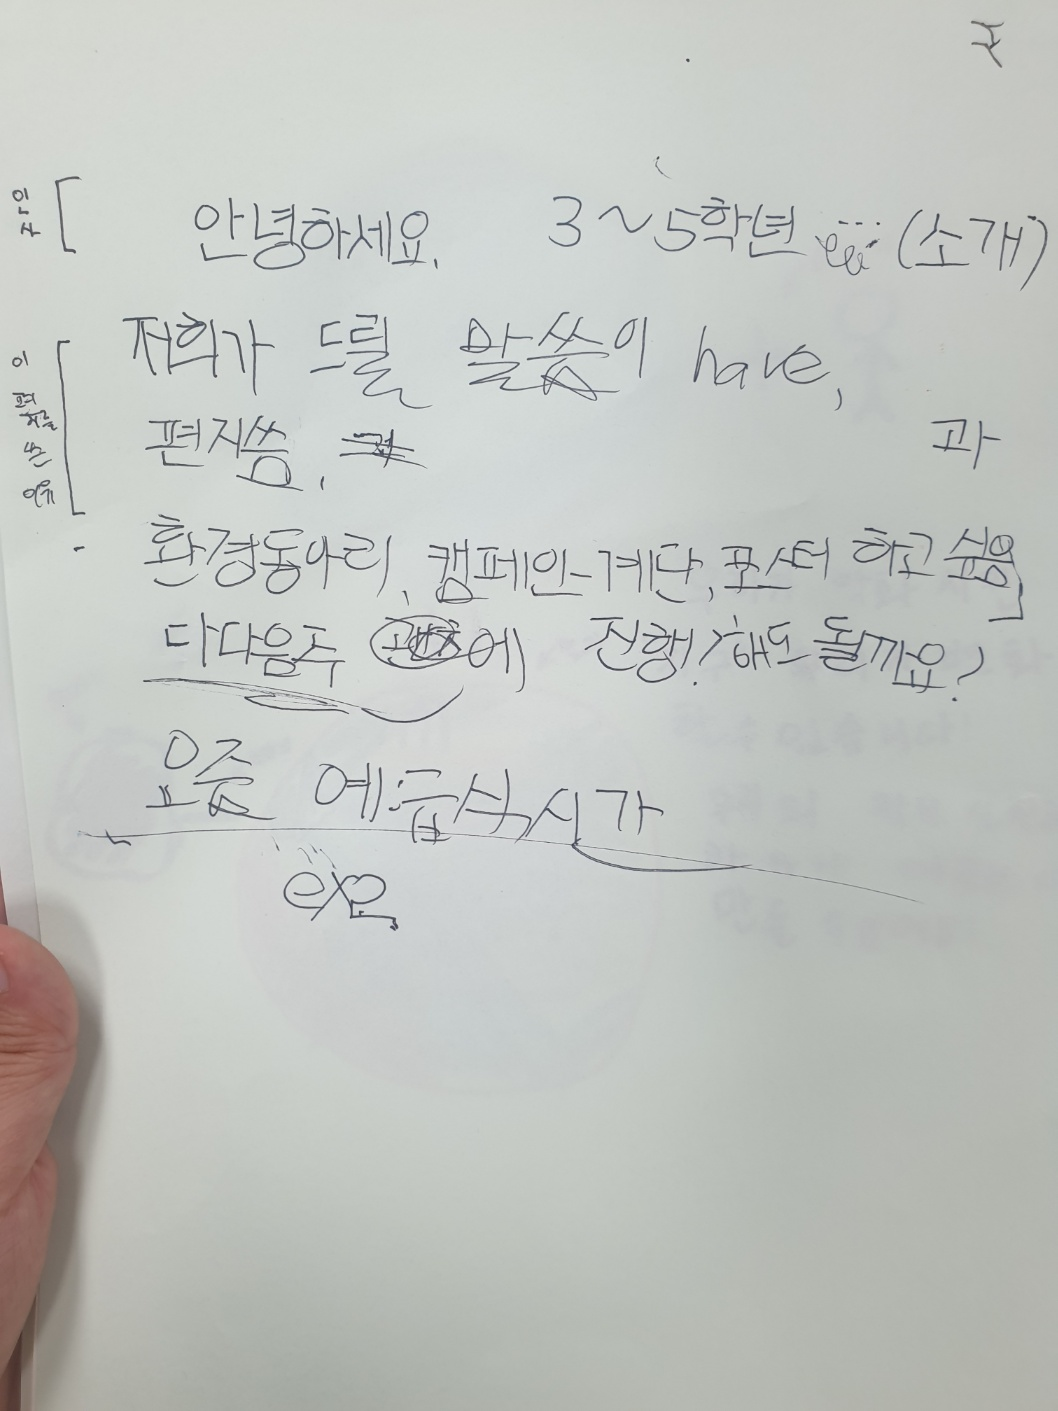 인사
안녕하세요. 3~5학년 (소개)
이 편지를 쓴 이유
저희가 드릴 말씀이 have,
편지씀, 과
환경동아리, 캠페인-계단, 포스터 하고 싶음
다다음주 에 진행? 해도 될까요?
요즘 예:급식시가